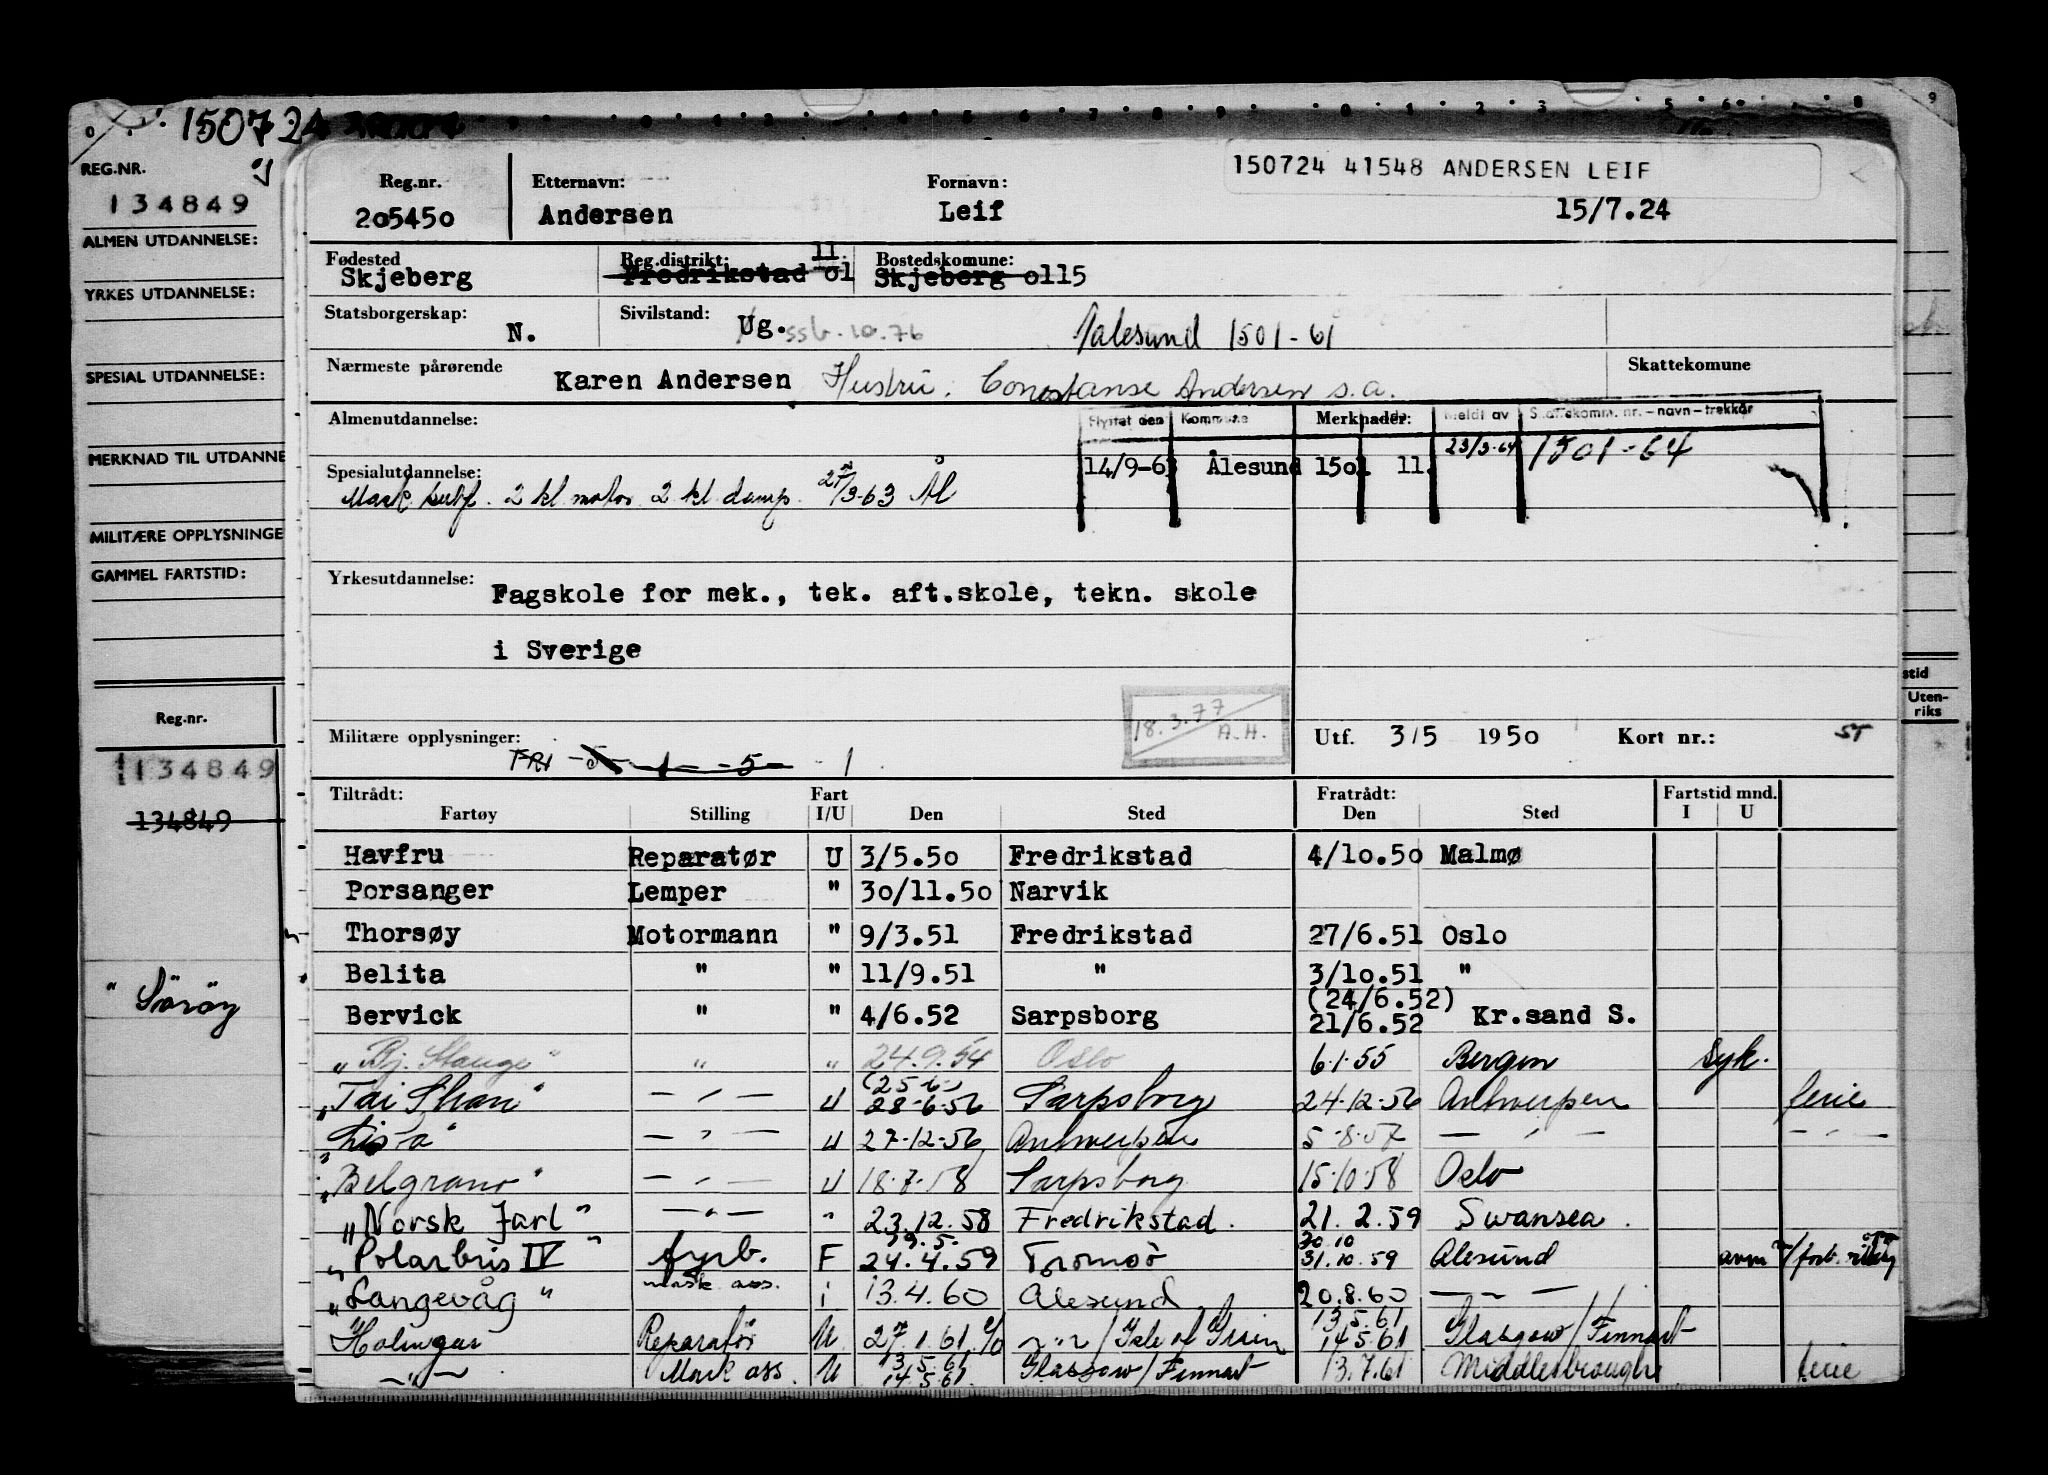 150724
REG.NR.
134849
ALMEN UTDANNELSE:
YRKES UTDANNELSE:
SPESIAL UTDANNELSE:
MERKNAD TIL UTDANNE
MILITÆRE OPPLYSNINGE
GAMMEL FARTSTID:
Reg.nr.
134849
134849
" Söröy
150724 41548 ANDERSEN LEIF
Reg.nr. Etternavn: Fornavn:
205450 Andersen Leif 15/7.24
Fødested Reg.distrikt: 11 Bostedskomune:
Skjeberg Fredrikstad 01 Skjeberg 0115
Statsborgerskap: N. Sivilstand: Ug. ssb.10.76 Aalesund 1501-61
Nærmeste pårørende Karen Andersen Hustru. Constanse Andersen s.a. Skattekomune
Almenutdannelse: Flyttet den Kommune Merknader: Meldt av Skattekomm. nr. – navn – trekkår
14/9-63 Ålesund 1501 11. 23/3-64 1501-64
Spesialutdannelse:
Mask sertf. 2 kl motor 2 kl damp. 27/3-63 Ål
Yrkesutdannelse: Fagskole for mek., tek. aft.skole, tekn. skole
i Sverige
18.3.77
A.H.
Militære opplysninger: Utf. 3/5 1950 Kort nr.: ST
FRI -5- 1 - -5- 1
Tiltrådt: Fart Fratrådt: Fartstid mnd.
Fartøy Stilling I/U Den Sted Den Sted I U
Havfru Reparatør U 3/5.50 Fredrikstad 4/10.50 Malmø
Porsanger Lemper " 30/11.50 Narvik
Thorsøy Motormann " 9/3.51 Fredrikstad 27/6.51 Oslo
Belita " " 11/9.51 " 3/10.51 "
(24/6.52)
Bervick " " 4/6.52 Sarpsborg 21/6.52 Kr.sand S.
"Bj. Stange" " " 24.9.54 Oslo 6.1.55 Bergen syk.
(25.6)
"Tai Shan" — " — U 28-6-56 Sarpsborg 24-12-56 Antwerpen ferie
"Lista" — " — U 27-12-56 Antwerpen 5-8-57 — " — — " —
"Belgrano" — " — U 18-7-58 Sarpsborg 15-10-58 Oslo
"Norsk Jarl" — " — " 23.12.58 Fredrikstad. 21.2.59 Swansea.
19.5. 30.10
"Polarbris IV" fyrb. F 24.4.59 Tromsö 31.10.59 Alesund avm
"Langevåg" mask ass. i 13.4.60 Alesund 20.8.60 — " —
13.5.61
Holingar Reparatör U 27.1.61 14.5.61 Glasgow/Finnart
— " — Mask ass. U 13.5.61 Glasgow/Finnart 13.7.61 Middlesbrough ferie
14.5.61
stid
Uten-
riks